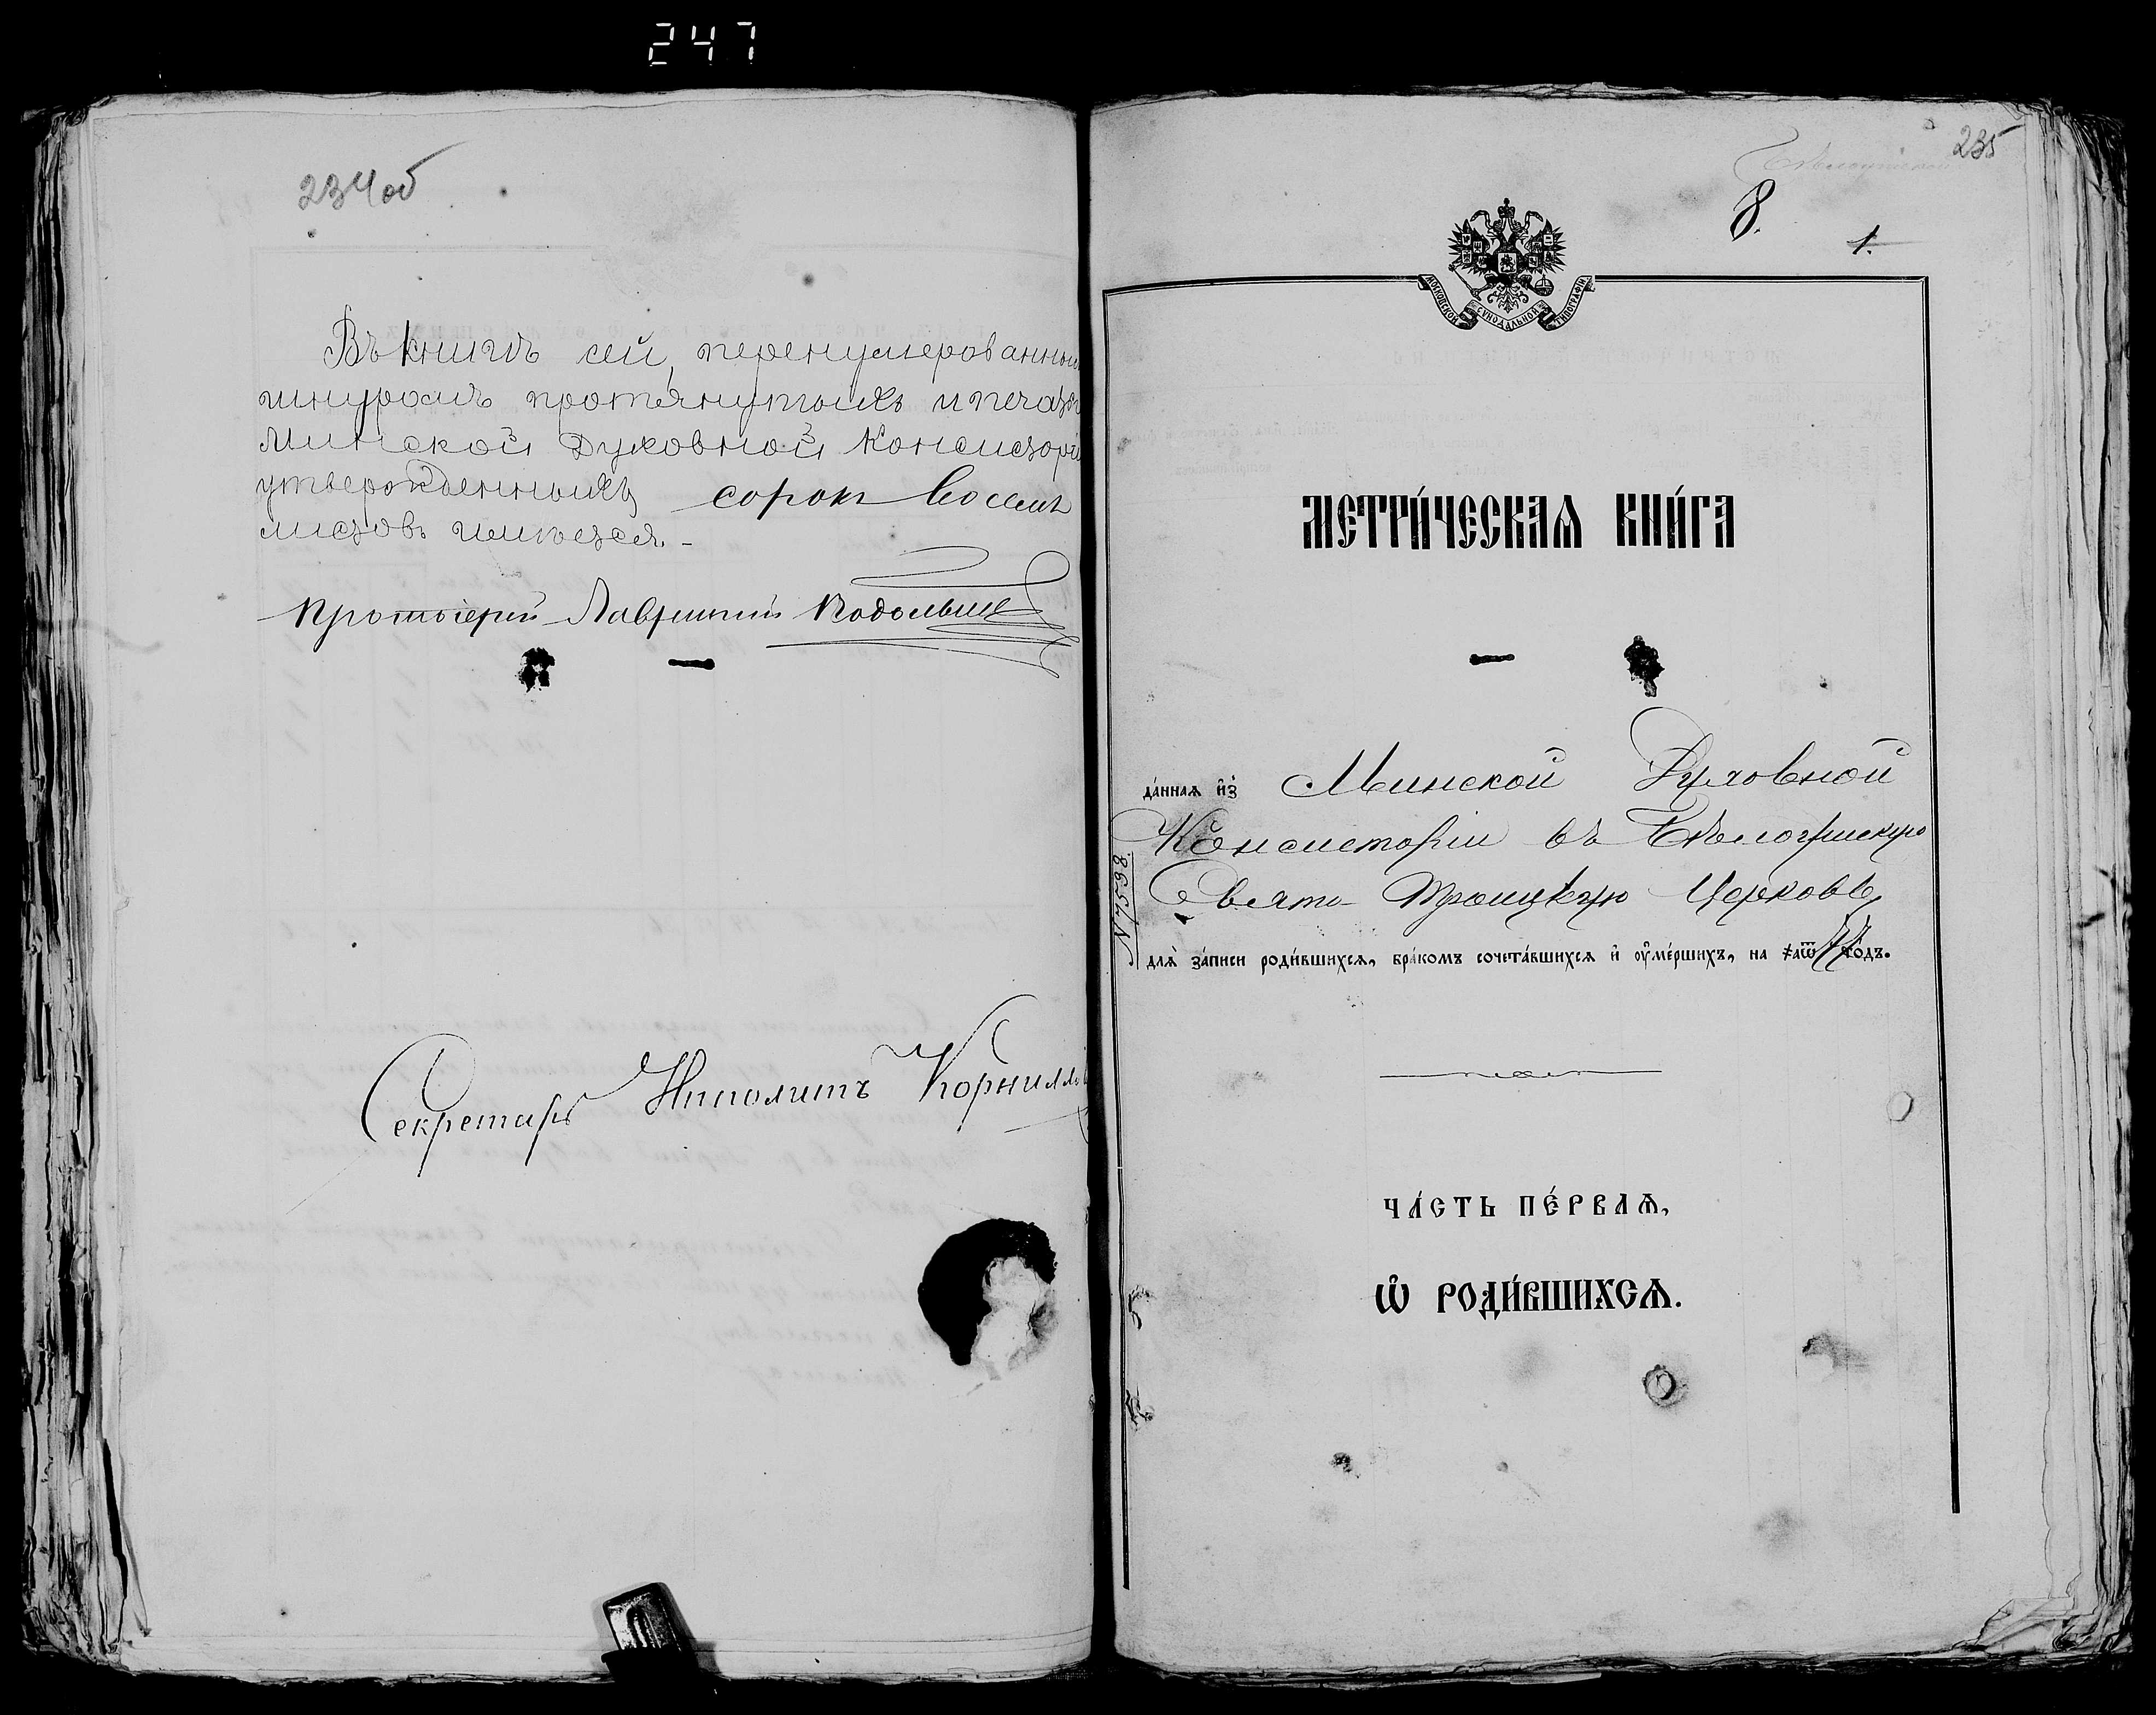 247
234об
Въ книгѣ сей, перенумерованныхъ
шнуромъ протянутыхъ и печатью
Минской Духовной Консисторіи
утвержденныхъ сорокъ восемь
листовъ имѣется. -
Протоіерей Лаврентій
Секретарь Ипполитъ Корнилло
235
8.
1.
МОСКОВСКОЙ СѴНОДАЛЬНОЙ ТИПОГРАФІИ
МЕТРИ́ЧЕСКАѦ КНИ́ГА
да́ннаѧ и҆з̾ Минской Духовной
Консисторіи въ
Свято-Троицкую Церковь
N 7598.
длѧ̀ за́писи роди́вшихсѧ, бра́комъ сочета́вшихсѧ и҆ ᲂу҆ме́ршихъ, на ҂аѿ го́дъ.
ЧА́СТЬ ПЕ́РВАѦ,
Ѡ҆ РОДИ́ВШИХСѦ.